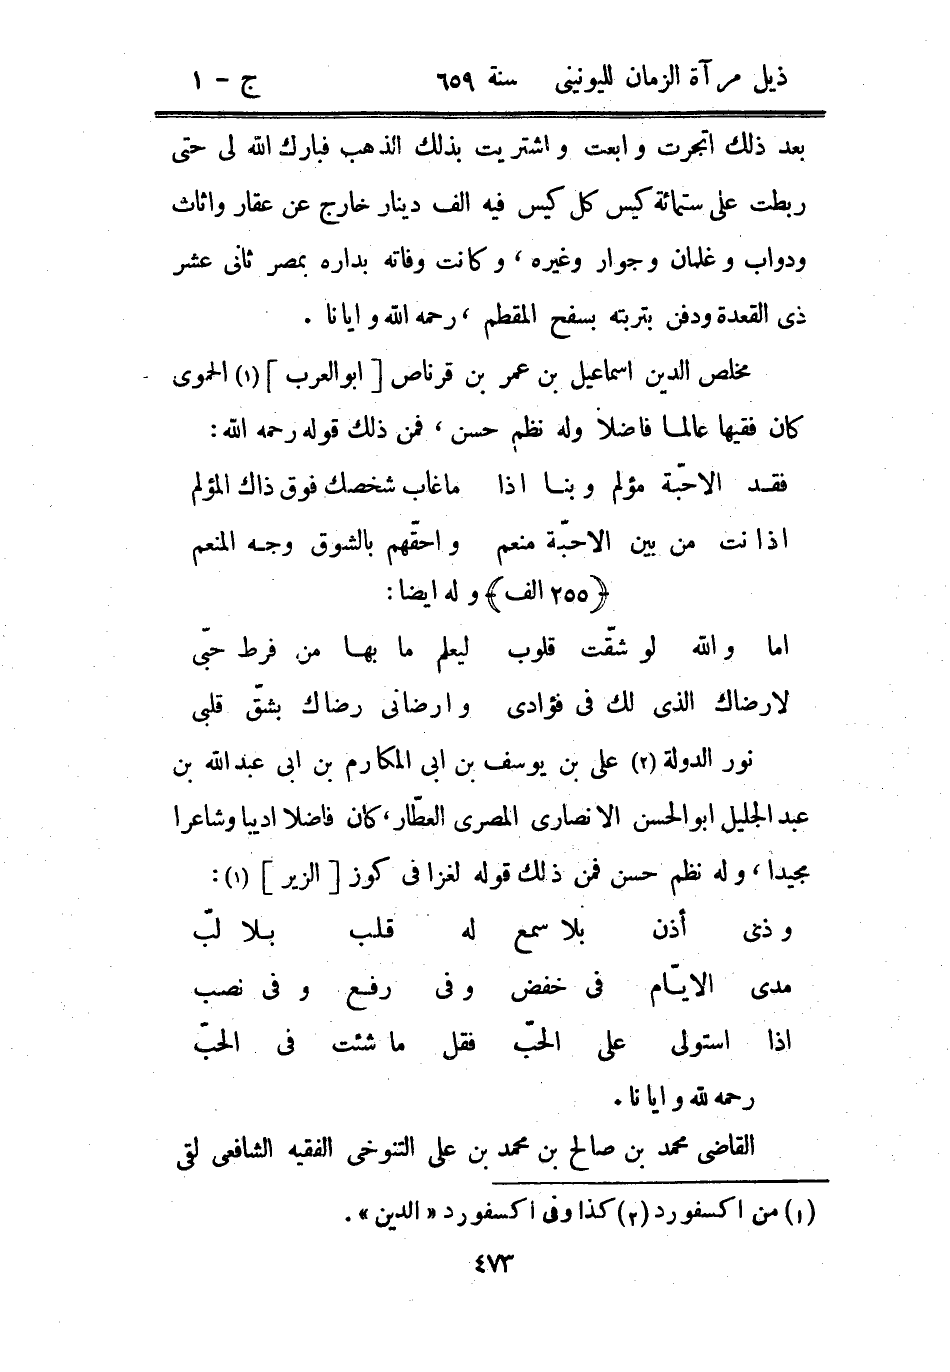 ذيل مرآة الزمان لليونينى سنة ٦٥٩ ج - ١
بعد ذلك اتجرت وابعت واشتريت بذلك الذهب فبارك الله لى حتى
ربطت على ستمائة كيس كل كيس فيه الف دينار خارج عن عقار واثاث
ودواب وغلمان وجوار وغيره ، وكانت وفاته بداره بمصر ثانى عشر
ذى القعدة ودفن بتربته بسفح المقطم ، رحمه الله وايانا .
مخلص الدين اسماعيل بن عمر بن قرناص [ ابو العرب ] (١) الحموى
كان فقيها عالما فاضلا وله نظم حسن ، فمن ذلك قوله رحمه الله :
فقد الاحبّة مؤلم وبنا اذا ماغاب شخصك فوق ذاك المؤلم
اذا نت من بين الاحبّة منعم واحقّهم بالشوق وجه المنعم
﴿٢٥٥ الف﴾ وله ايضا :
اما والله لو شقّت قلوب ليعلم ما بها من فرط حبّى
لارضاك الذى لك فى فؤادى وارضانى رضاك بشقّ قلبى
نور الدولة (٢) على بن يوسف بن ابى المكارم بن ابى عبدالله بن
عبد الجليل ابوالحسن الانصارى المصرى العطّار ، كان فاضلا اديبا وشاعرا
مجيدا ، وله نظم حسن فمن ذلك قوله لغزا فى كوز [ الزير ] (١) :
وذى أذن بلا سمع له قلب بلا لبّ
مدى الايّام فى خفض وفى رفع وفى نصب
اذا استولى على الحبّ فقل ما شئت فى الحبّ
رحمه لله وايانا .
القاضى محمد بن صالح بن محمد بن على التنوخى الفقيه الشافعى لقى
(١) من اكسفورد (٢) كذا وفى اكسفورد « الدين » .
٤٧٣